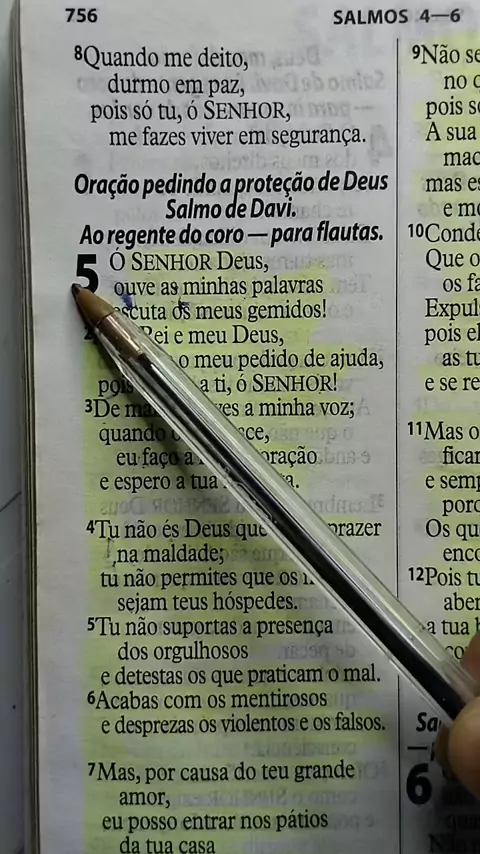 756
SALMOS 4—6
8Quando me deito,
durmo em paz,
pois só tu, ó SENHOR,
me fazes viver em segurança.
Oração pedindo a proteção de Deus
Salmo de Davi.
Ao regente do coro — para flautas.
5 Ó SENHOR Deus,
ouve as minhas palavras
escuta os meus gemidos!
Rei e meu Deus,
o meu pedido de ajuda,
pois a ti, ó SENHOR!
3De a minha voz;
quando
eu faço a oração
e espero a tua
4Tu não és Deus que prazer
na maldade;
tu não permites que os
sejam teus hóspedes.
5Tu não suportas a presença
dos orgulhosos
e detestas os que praticam o mal.
6Acabas com os mentirosos
e desprezas os violentos e os falsos.
7Mas, por causa do teu grande
amor,
eu posso entrar nos pátios
da tua casa
9Não
no
pois
A sua
mas
e
10
Que o
os
Expul
pois
as
e se
11Mas o
ficar
e
Os
12Pois
a tua
6